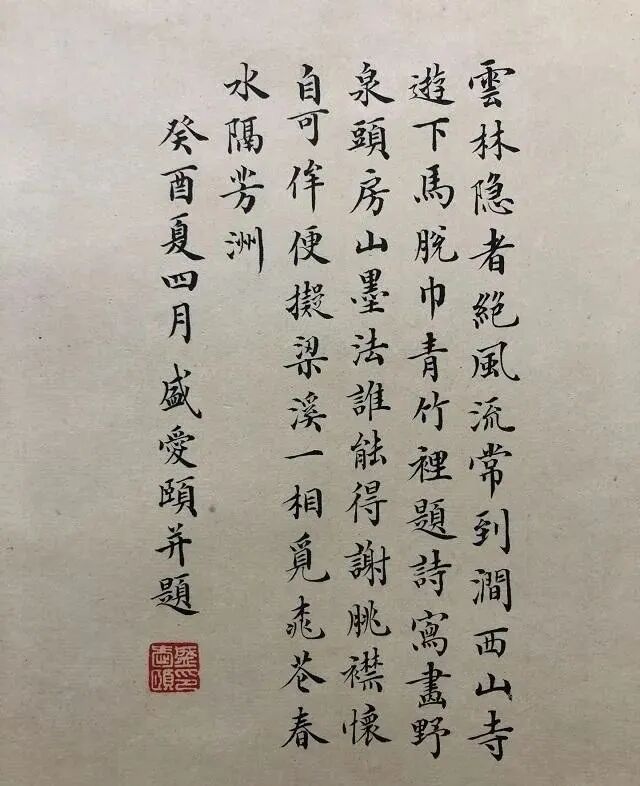 雲林隐者絕風流常到澗西山寺
遊下馬脫巾青竹裡題詩寫畫野
泉頭房山墨法誰能得謝朓襟懷
自可侔便擬梁溪一相覓桃花春
水隔芳洲
癸酉夏四月盛愛頤并題
盛愛頤印